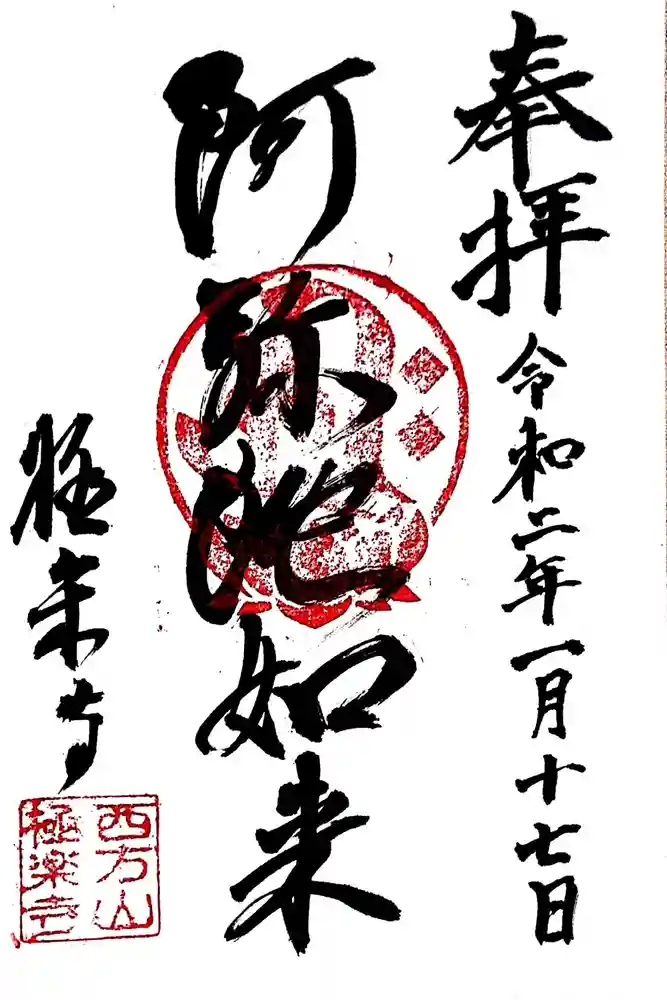 奉拝 令和二年一月十七日
阿弥陀如来
極楽寺
西方山
極楽寺